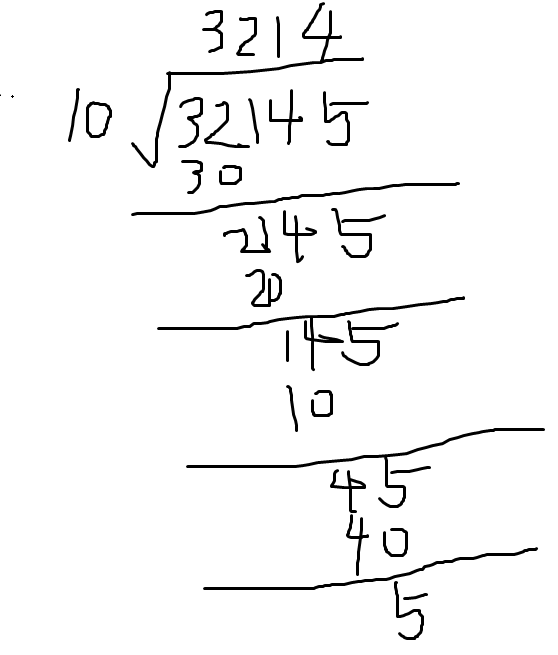 3214
10 √32145
30
2145
20
145
10
45
40
5